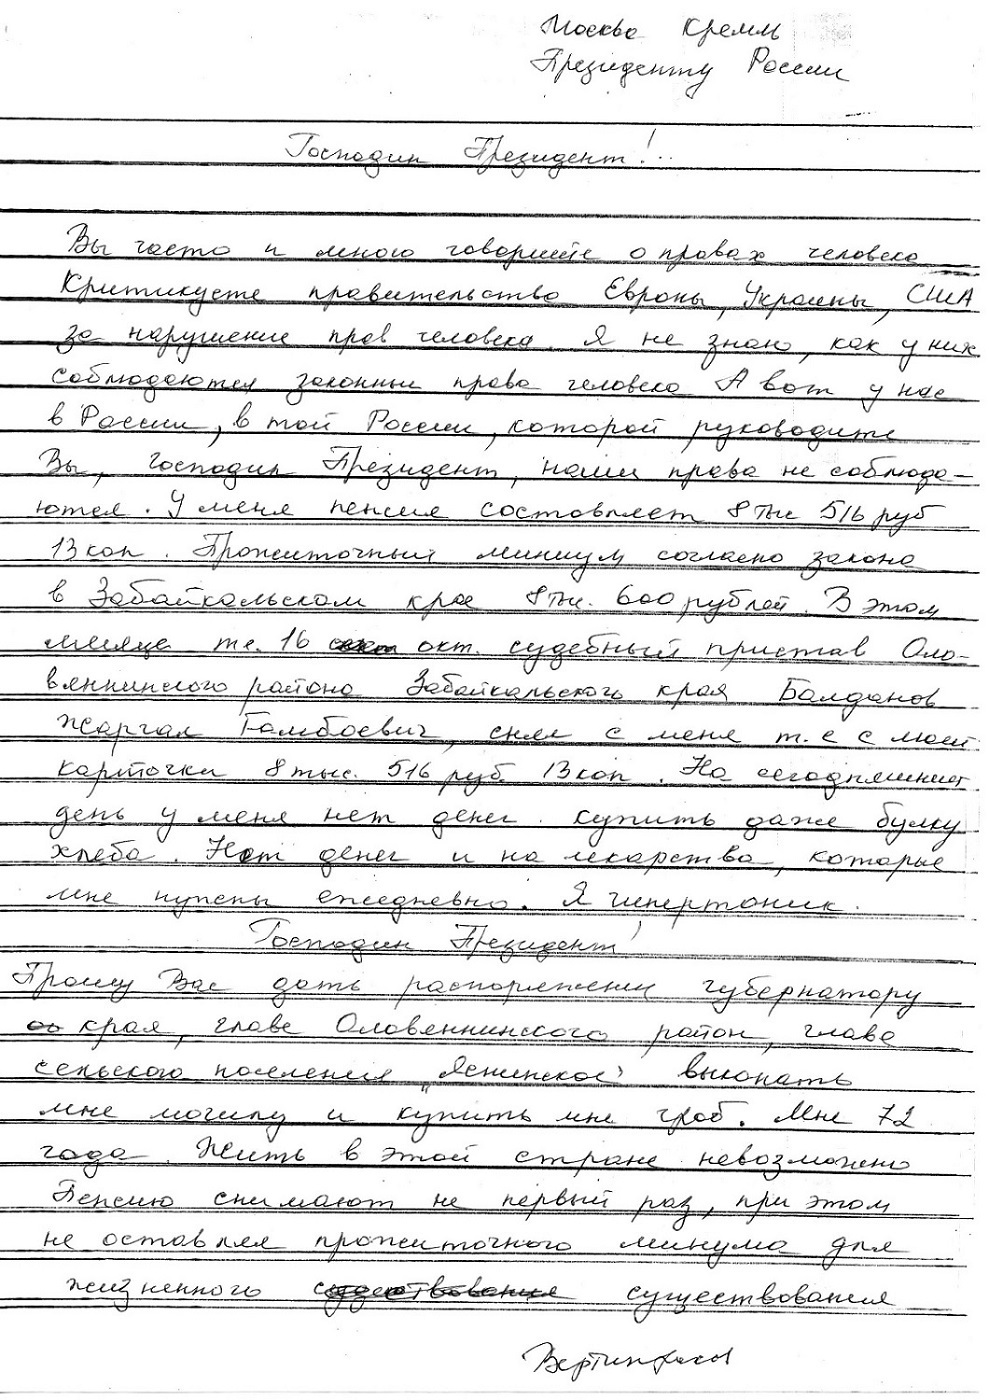 Москва Кремль
Президенту России
Господин Президент!..
Вы часто и много говорите о правах человека
Критикуете правительства Европы, Украины, США
за нарушение прав человека. Я не знаю, как у них
соблюдаются законные права человека А вот у нас
в России, в той России, которой руководите
Вы, Господин Президент, наши права не соблюда-
ются. У меня пенсия составляет 8 тыс 516 руб
13 коп. Прожиточный миниум согласно закона
в Забайкальском крае 8 тыс. 600 рублей. В этом
месяце те. 16 окт. судебный пристав Оло-
вяннинского района Забайкальского края Балданов
Жаргал Гамбоевич, снял с меня т.е с моей
карточки 8 тыс. 516 руб 13 коп. На сегодняшний
день у меня нет денег. купить даже булку
хлеба. Нет денег и на лекарства, которые
мне нужны ежедневно. Я гипертоник.
Господин Президент!
Прошу Вас дать распоряжение губернатору
края, главе Оловяннинского район, глава
сельского поселения „Ясинское" выкопать
мне могилу и купить мне гроб. Мне 72
года. Жить в этой стране невозможно
Пенсию снимают не первый раз, при этом
не оставляя прожиточного минума для
жизненного существования